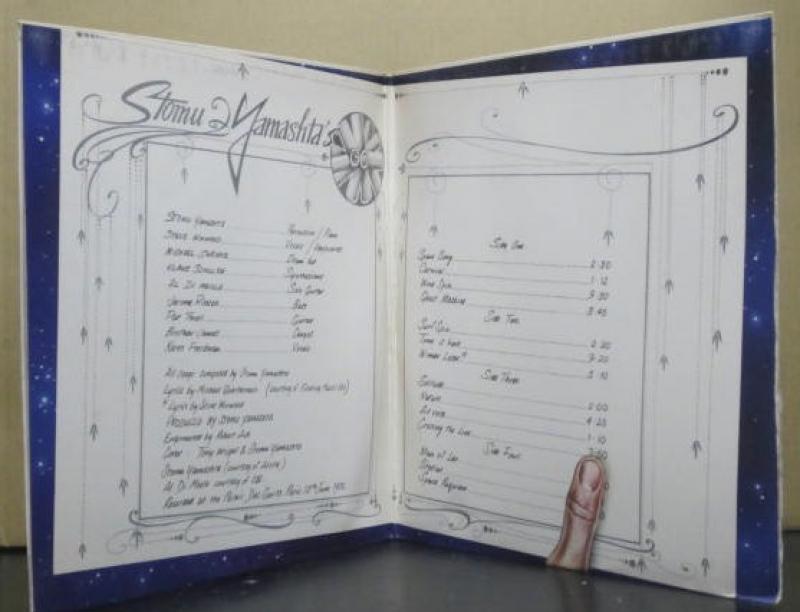 Stomu Yamashta's
GO
Stomu Yamashta Percussion / Piano
Steve Winwood Vocal /
Michael Shrieve Drum
Klaus Schulze Synthesizers
Al Di Meola Solo Guitar
Jerome Rimson Bass
Pat Thrall Guitar
Brother James Congas
Karen Friedman Vocals
All songs composed by Stomu Yamashta
Lyrics by Michael Quartermain (courtesy of
* Lyrics by Steve Winwood
Produced by Stomu Yamashta
Engineered by Robert Ash
Cover Tony Wright & Stomu Yamashta
Stomu Yamashta (courtesy of
Al Di Meola courtesy of CBS
Recorded at the Palais Des Sports Paris 12th June 1976
Side One
Space Song 2·30
Carnival 1·12
Wind Spin 9·30
Ghost Machine 3·45
Side Two
Surf Spin 2·20
Time is here 9·20
Winner Loser* 5·10
Side Three
Solitude
Nature 4·25
Air voice 1·10
Crossing the Line
Side Four
Man of Leo
Stellar
Space Requiem